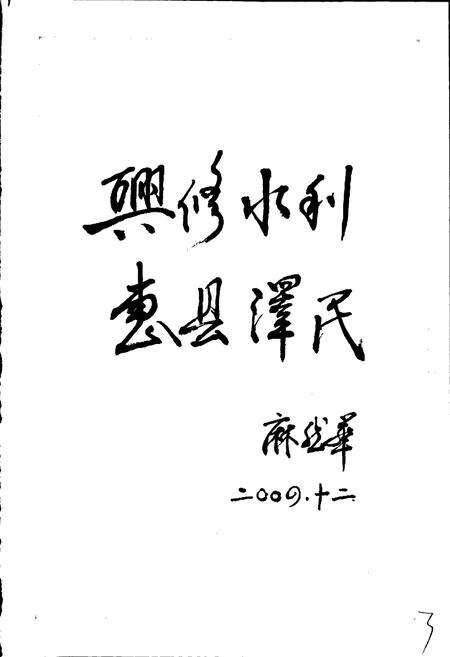 興修水利
惠县澤民
麻　華
二〇〇四.十二
3